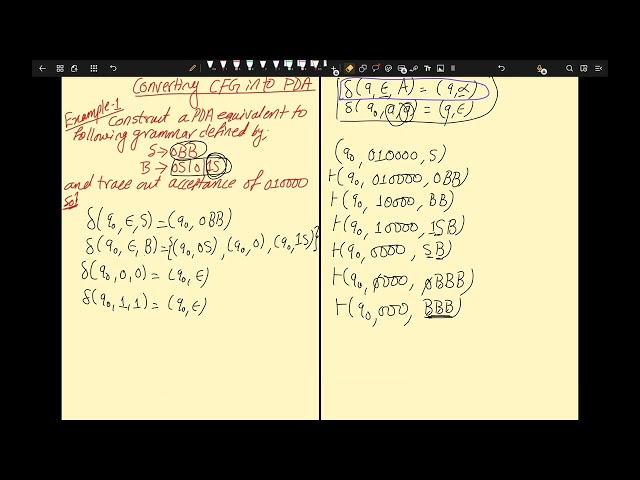 Converting CFG into PDA
Example-1
Construct a PDA equivalent to
following grammar defined by:
S→0BB
B→0S|0|1S
and trace out acceptance of 010000
Sol
δ(q₀, ϵ, S)=(q₀, 0BB)
δ(q₀, ϵ, B)={(q₀, 0S), (q₀, 0), (q₀, 1S)}
δ(q₀, 0, 0)=(q₀, ϵ)
δ(q₀, 1, 1)=(q₀, ϵ)
δ(q, ϵ, A)=(q, α)
δ(q₀, a, a)=(q, ϵ)
(q₀, 010000, S)
⊢(q₀, 010000, 0BB)
⊢(q₀, 10000, BB)
⊢(q₀, 10000, 1SB)
⊢(q₀, 0000, SB)
⊢(q₀, 0000, 0BBB)
⊢(q₀, 000, BBB)